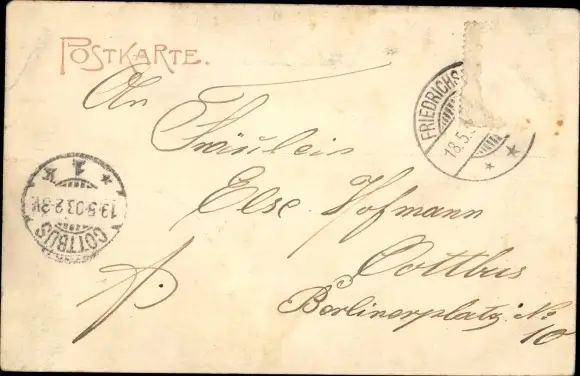 POSTKARTE.
An
Fräulein
Else Hofmann
Cottbus
Berlinerplatz No
10
FRIEDRICHS
18.5.
COTTBUS
19.5.03.2-3V.
1